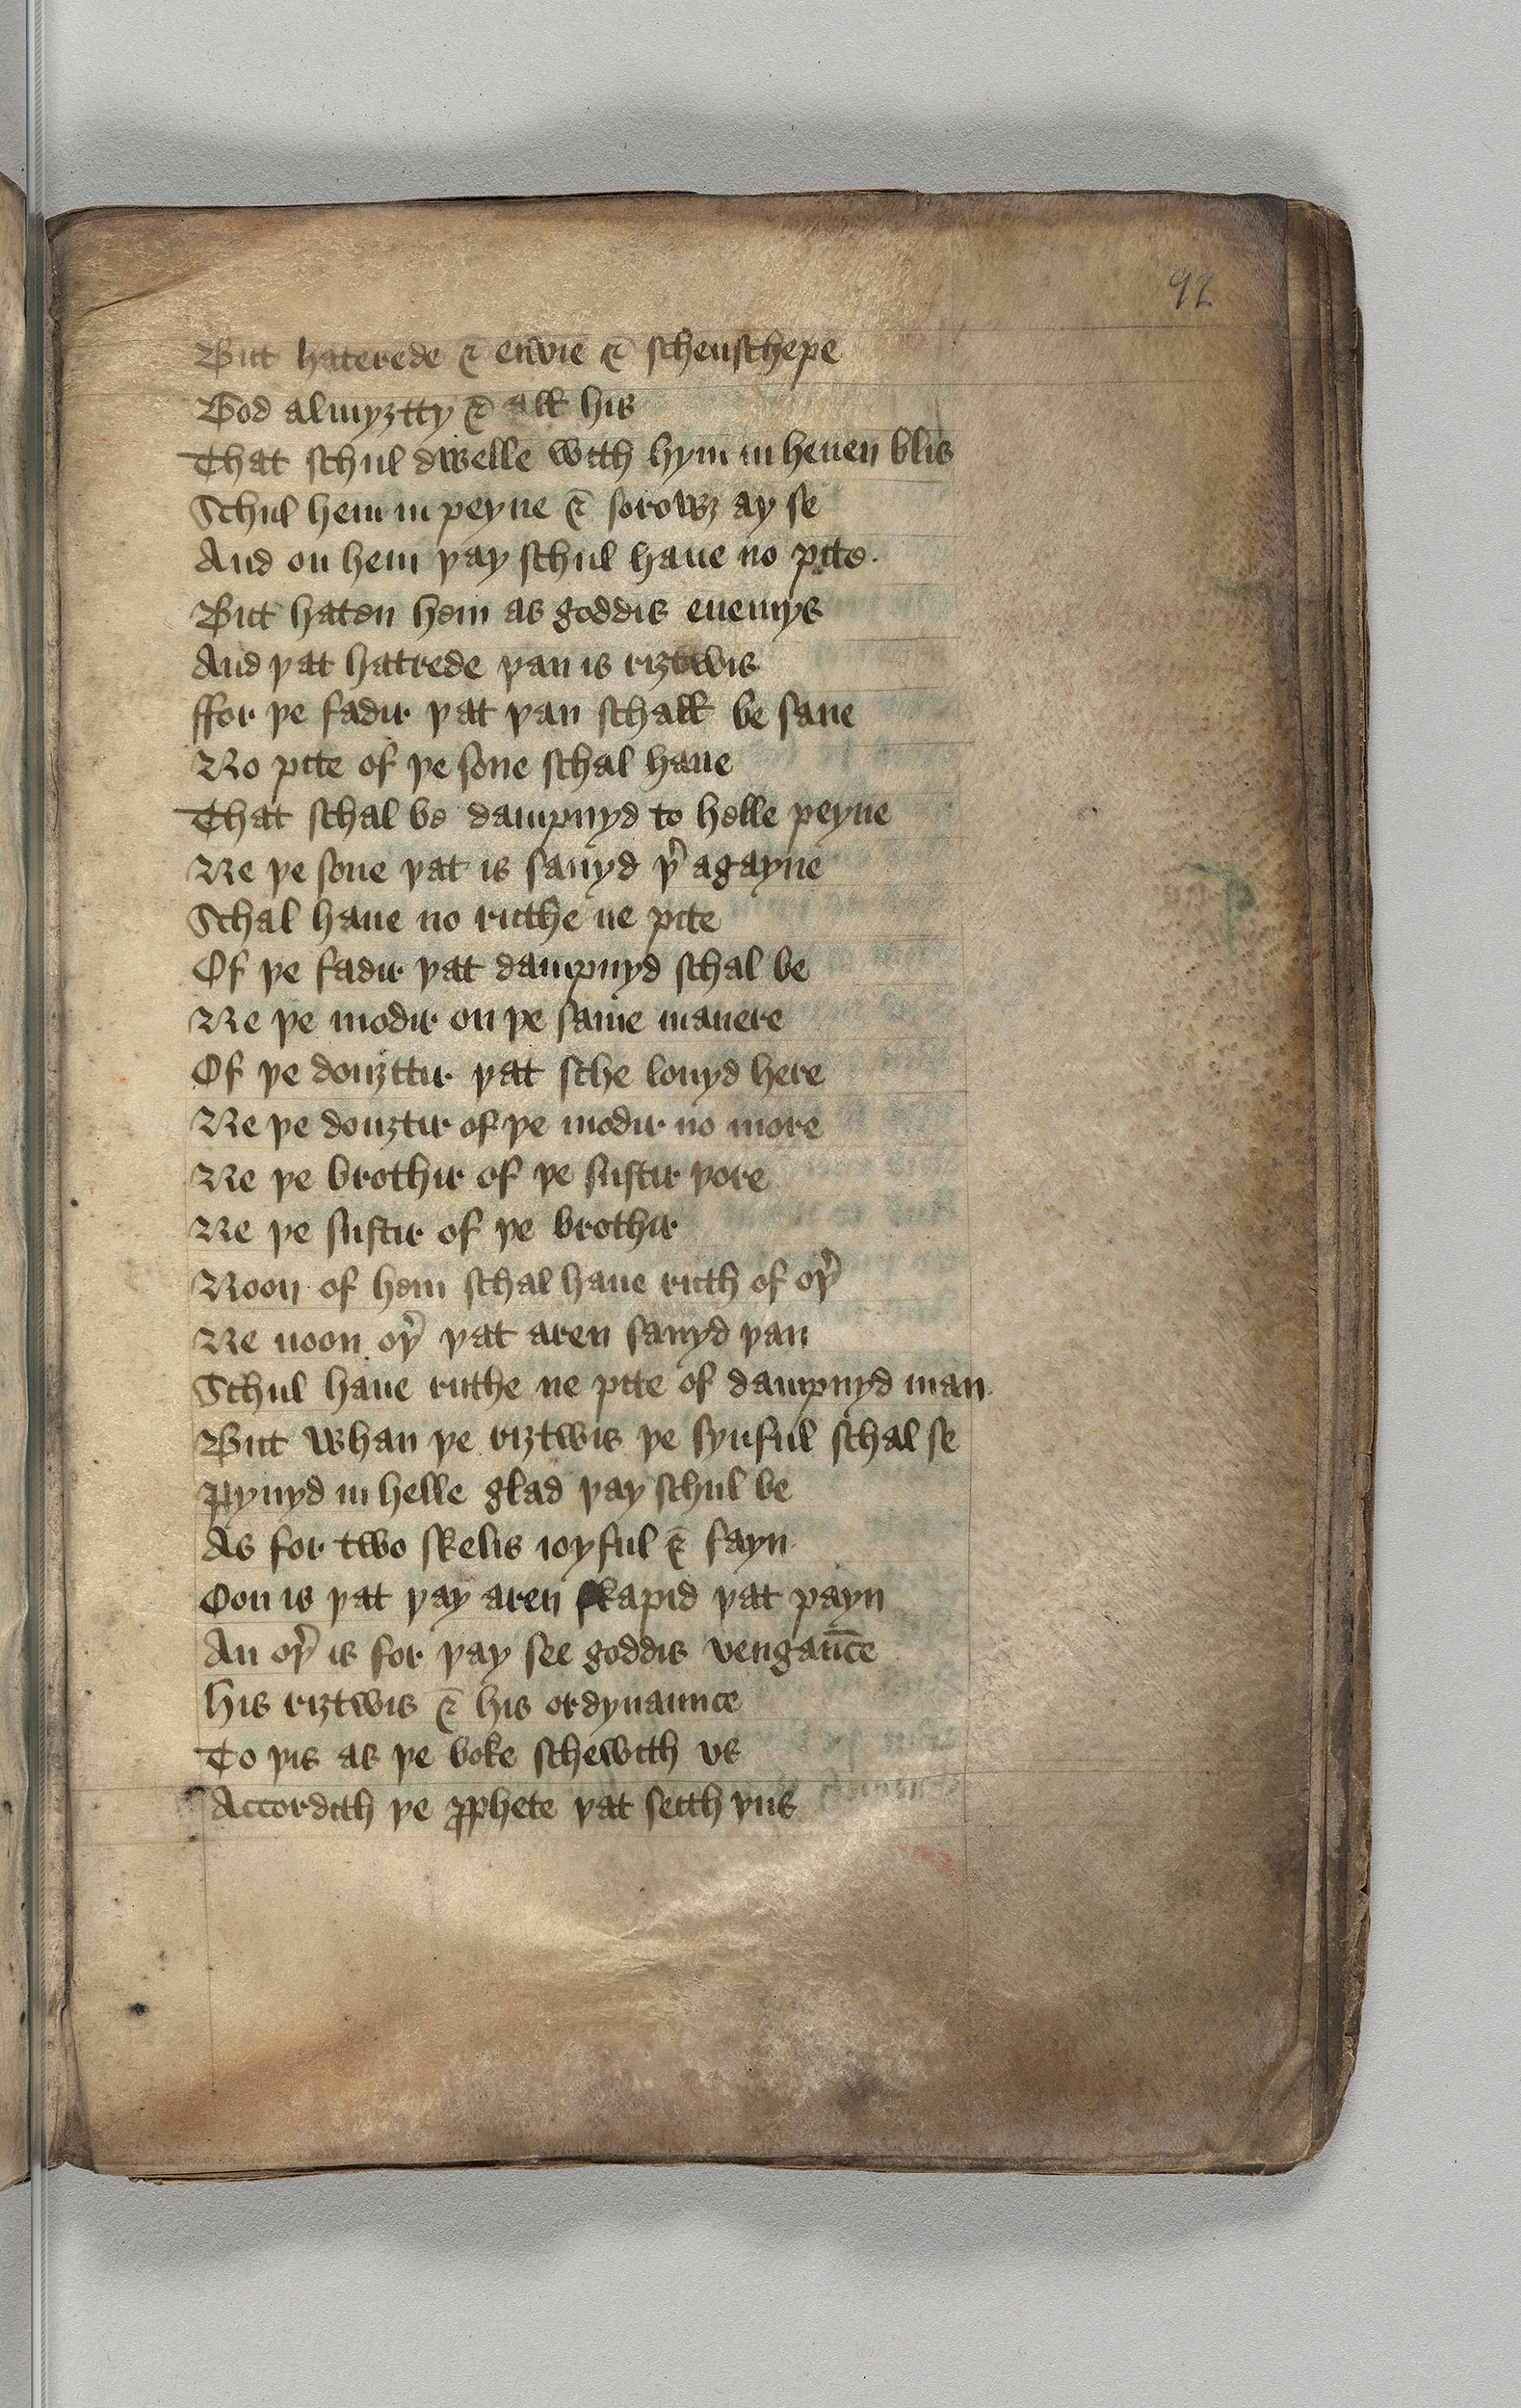 92
But haterede & envie & schenschepe
God almyȝtty & all his
That schul dwelle with hym in heuen blis
Schul hem in peyne & sorowȝ ay se
And on hem þay schul haue no pite.
But haten hem as goddis enemys
And þat hatrede þan is riȝtwis
ffor þe fadir þat þan schall be saue
No pite of þe sone schal haue
That schal be dampnyd to helle peyne
Ne þe sone þat is sauyd þ͛ agayne
Schal haue no ruthe ne pite
Of þe fadir þat dampnyd schal be
Ne þe modir on þe same manere
Of þe douȝttir þat sche louyd here
Ne þe douȝtir of þe modir no more
Ne þe brothir of þe sustir þore
Ne þe sustir of þe brothir
Noon of hem schal haue ruth of oþ͛
Ne noon oþ͛ þat aren sauyd þan
Schul haue ruthe ne pite of dampnyd man.
But whan þe riȝtwis þe synful schal se
Pynyd in helle glad þay schul be
As for two skelis ioyful & fayn
Oon is þat þay aren skapid þat payn
An oþ͛ is for þay see goddis vengaūce
His riȝtwis & his ordynaunce
To þis as þe boke schewith vs
Accordith þe ꝓphete þat seith þus